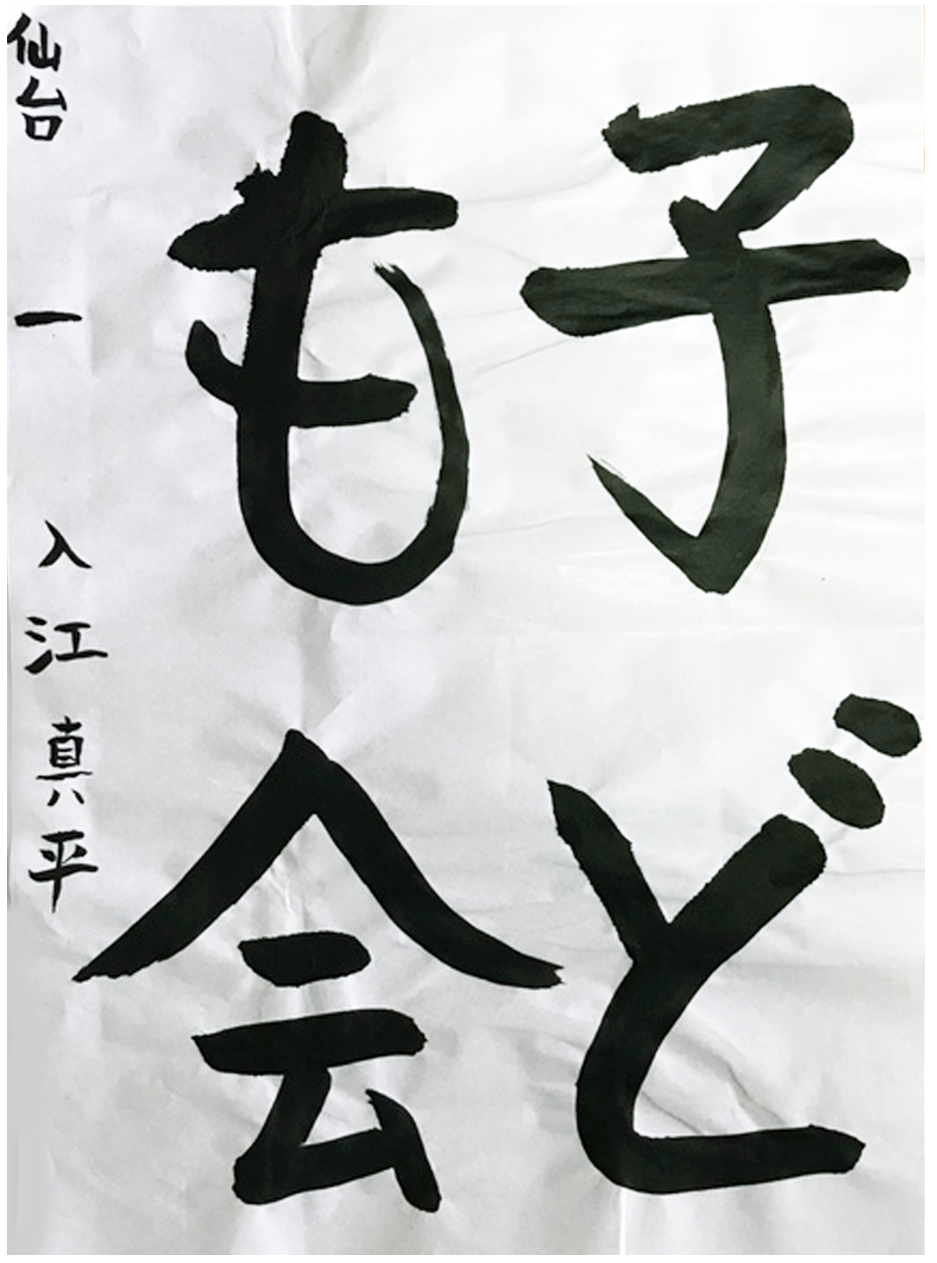 子ど
も会
仙台 一 入江 真平